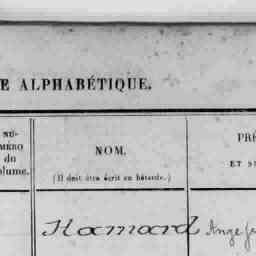 E ALPHABÉTIQUE.
NU-
MÉRO
du
olume.
NOM.
(Il doit être écrit en bâtarde.)
PRÉ
ET S
Hamard Ange